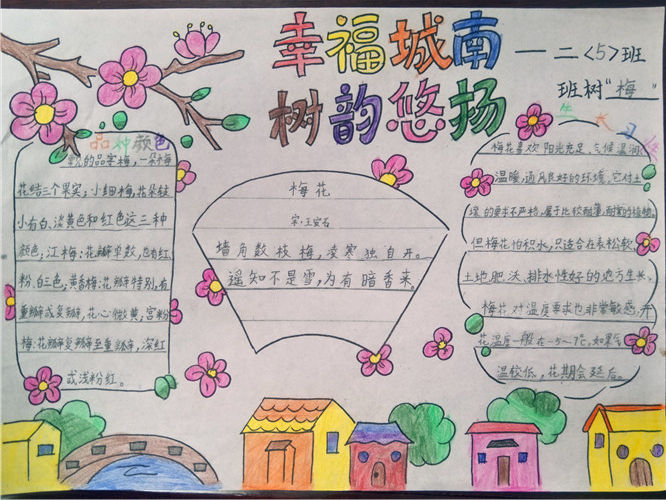 幸福城南
树韵悠扬
一二<5>班
班树“梅”
品种颜色
的品字梅,一朵梅
花结三个果实;小细梅,花朵较
小有白、淡黄色和红色这三种
颜色;江梅:花瓣单数,也有红、
粉、白三色;黄香梅:花瓣特别,有
重瓣或复瓣,花心微黄;宫粉
梅:花瓣复瓣至重瓣,深红
或浅粉红。
梅花
宋·王安石
墙角数枝梅,凌寒独自开。
遥知不是雪,为有暗香来。
生长习性
梅花喜欢阳光充足、气候温润、
温暖,通风良好的环境。它对土
壤的要求不严格,属于比较耐瘠、耐寒的植物,
但梅花怕积水,只适合在表松软、
土地肥沃、排水性好的地方生长。
梅花对温度要求也非常敏感,开
花温度一般在-5~7℃,如果气
温较低,花期会延后。